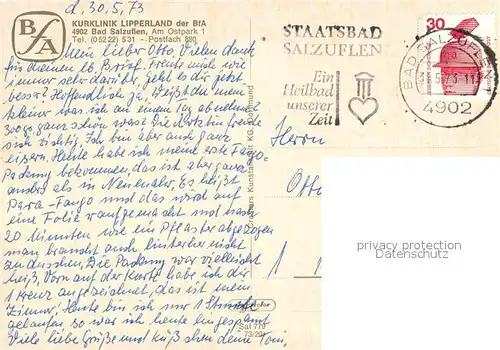 d. 30.5.73
BfA
KURKLINIK LIPPERLAND der BfA
4902 Bad Salzuflen, Am Ostpark 1
Tel. (0 52 22) 5 31 - Postfach 880
Mein lieber Otto, Vielen Dank
für deinen lb. Brief. Freute mich wie
immer sehr darüber, geht es dir jetzt
besser? Hoffentlich ja. Weißt du meine
kleiner was ich an einem Tag abnehme?
300 g ganz schön was? Die Ärztin freute
sich richtig, Ich bin aber auch ganz
eisern. Heute habe ich meine erste Fango-
Packung bekommen, das ist aber ganz
anders als in Neuenahr. Es heißt
Para-Fango und das wird auf
eine Folie raufgemacht und nach
20 Minuten wie ein Pflaster abgezogen
man braucht auch hinterher nicht
duschen. Die Packung war vielleicht
heiß. Vorn auf der Karte habe ich dir
1 Kreuz angezeichnet, das ist mein
Zimmer. Heute bin ich nur 1 Stunde
gelaufen so war ich heute eingespannt
Viele liebe Grüße und Kuß Toni,
STAATSBAD
SALZUFLEN
Ein
Heilbad
unserer
Zeit
30
BAD SALZUFLEN
4902
Herrn
Otto
Cramers Kunstanstalt KG, Dortmund
Sal 779
73/20
privacy protection
Datenschutz